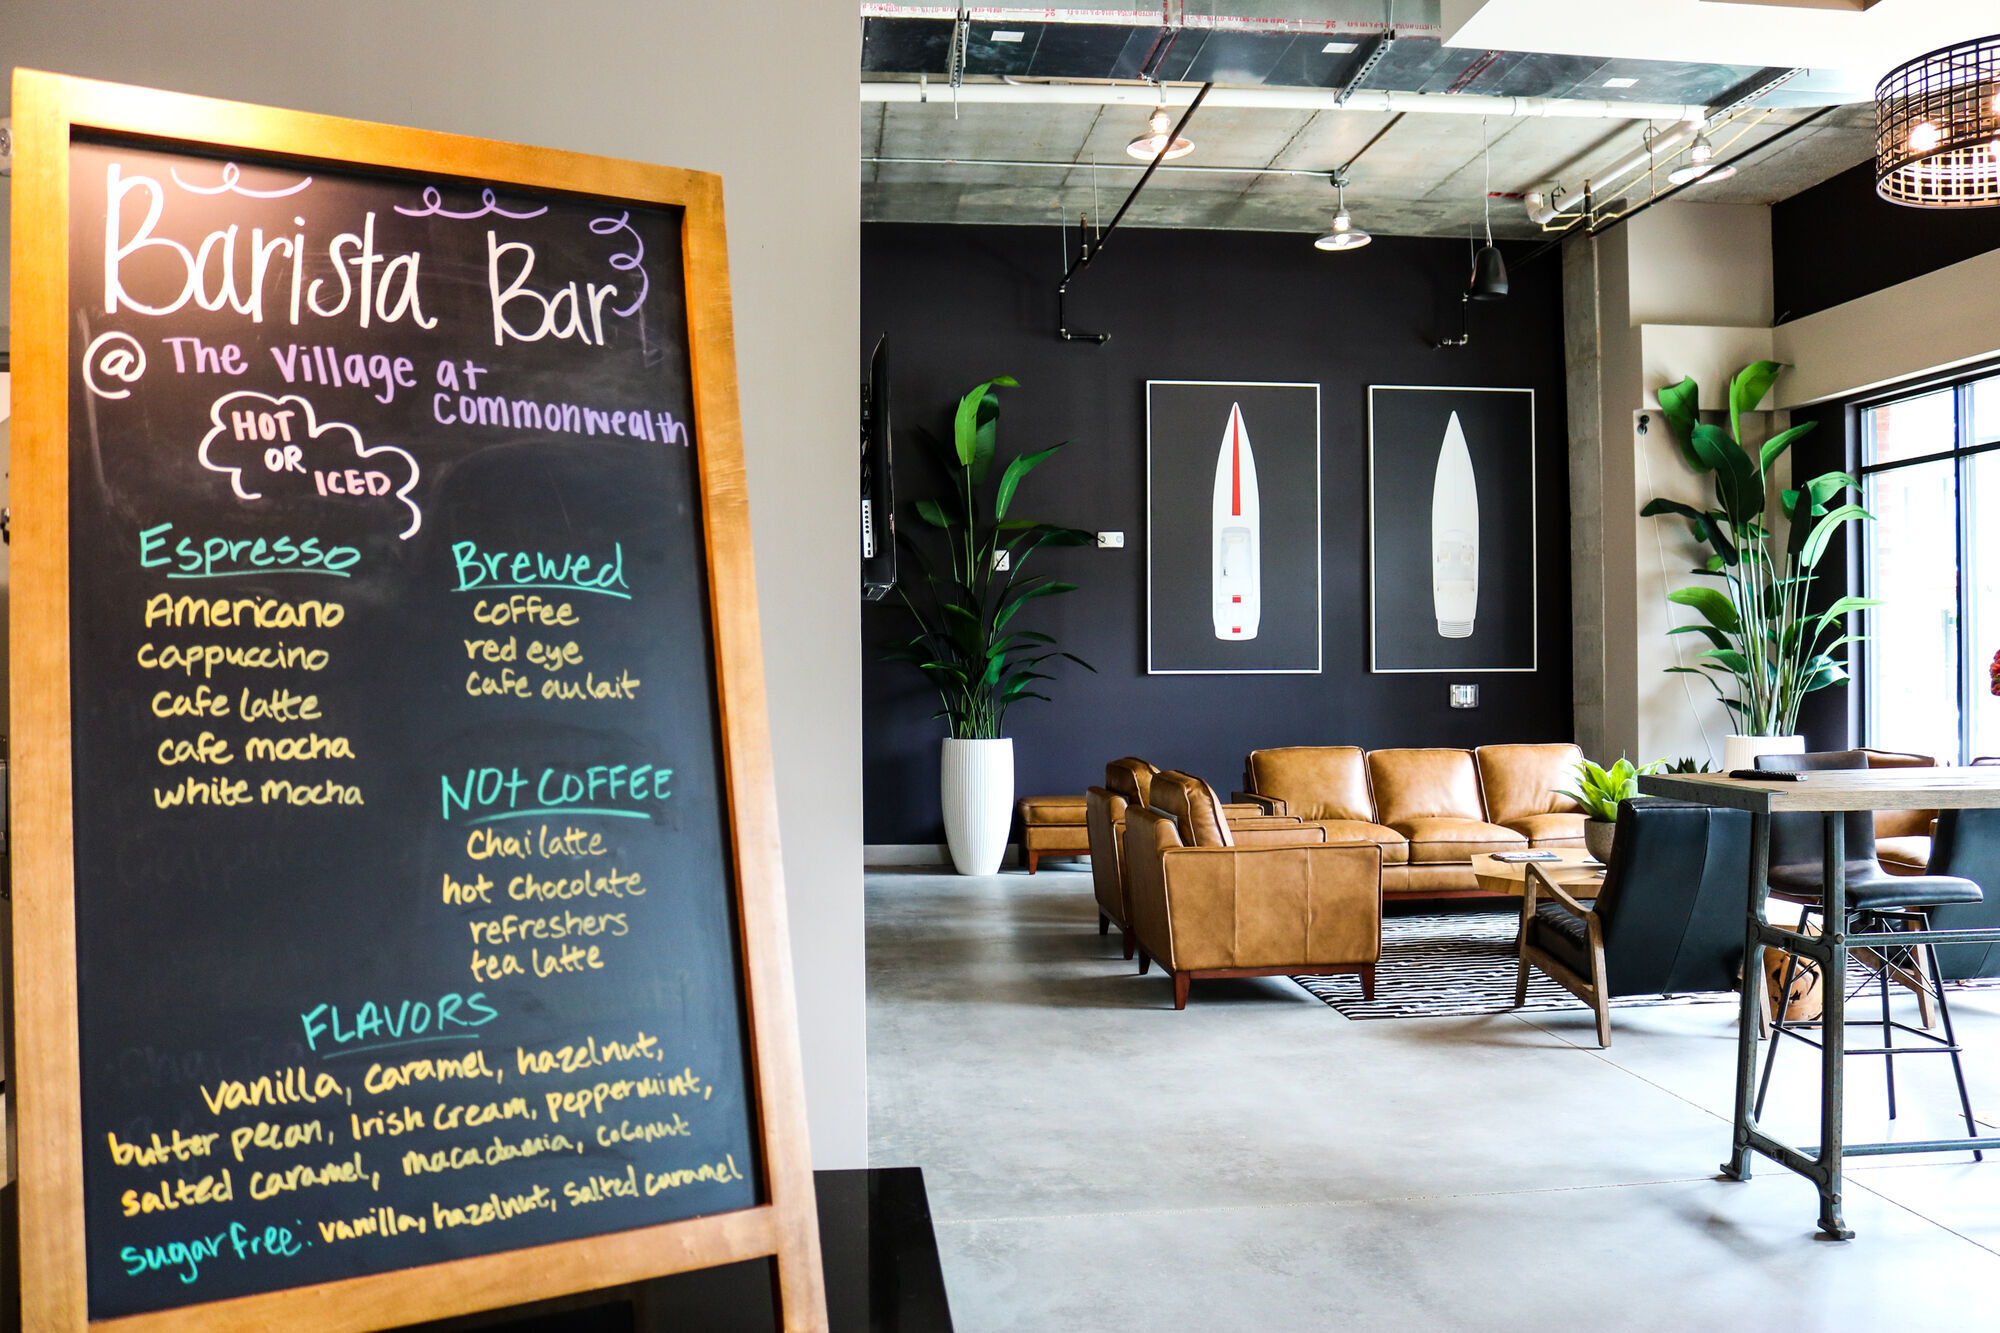 Barista Bar
@ The Village at
Commonwealth
HOT
OR
ICED
Espresso
Americano
cappuccino
cafe latte
cafe mocha
white mocha
Brewed
coffee
red eye
cafe au lait
NOT COFFEE
Chai latte
hot chocolate
refreshers
tea latte
FLAVORS
vanilla, caramel, hazelnut,
butter pecan, Irish Cream, peppermint,
salted caramel, macadamia, coconut
sugar free: vanilla, hazelnut, salted caramel